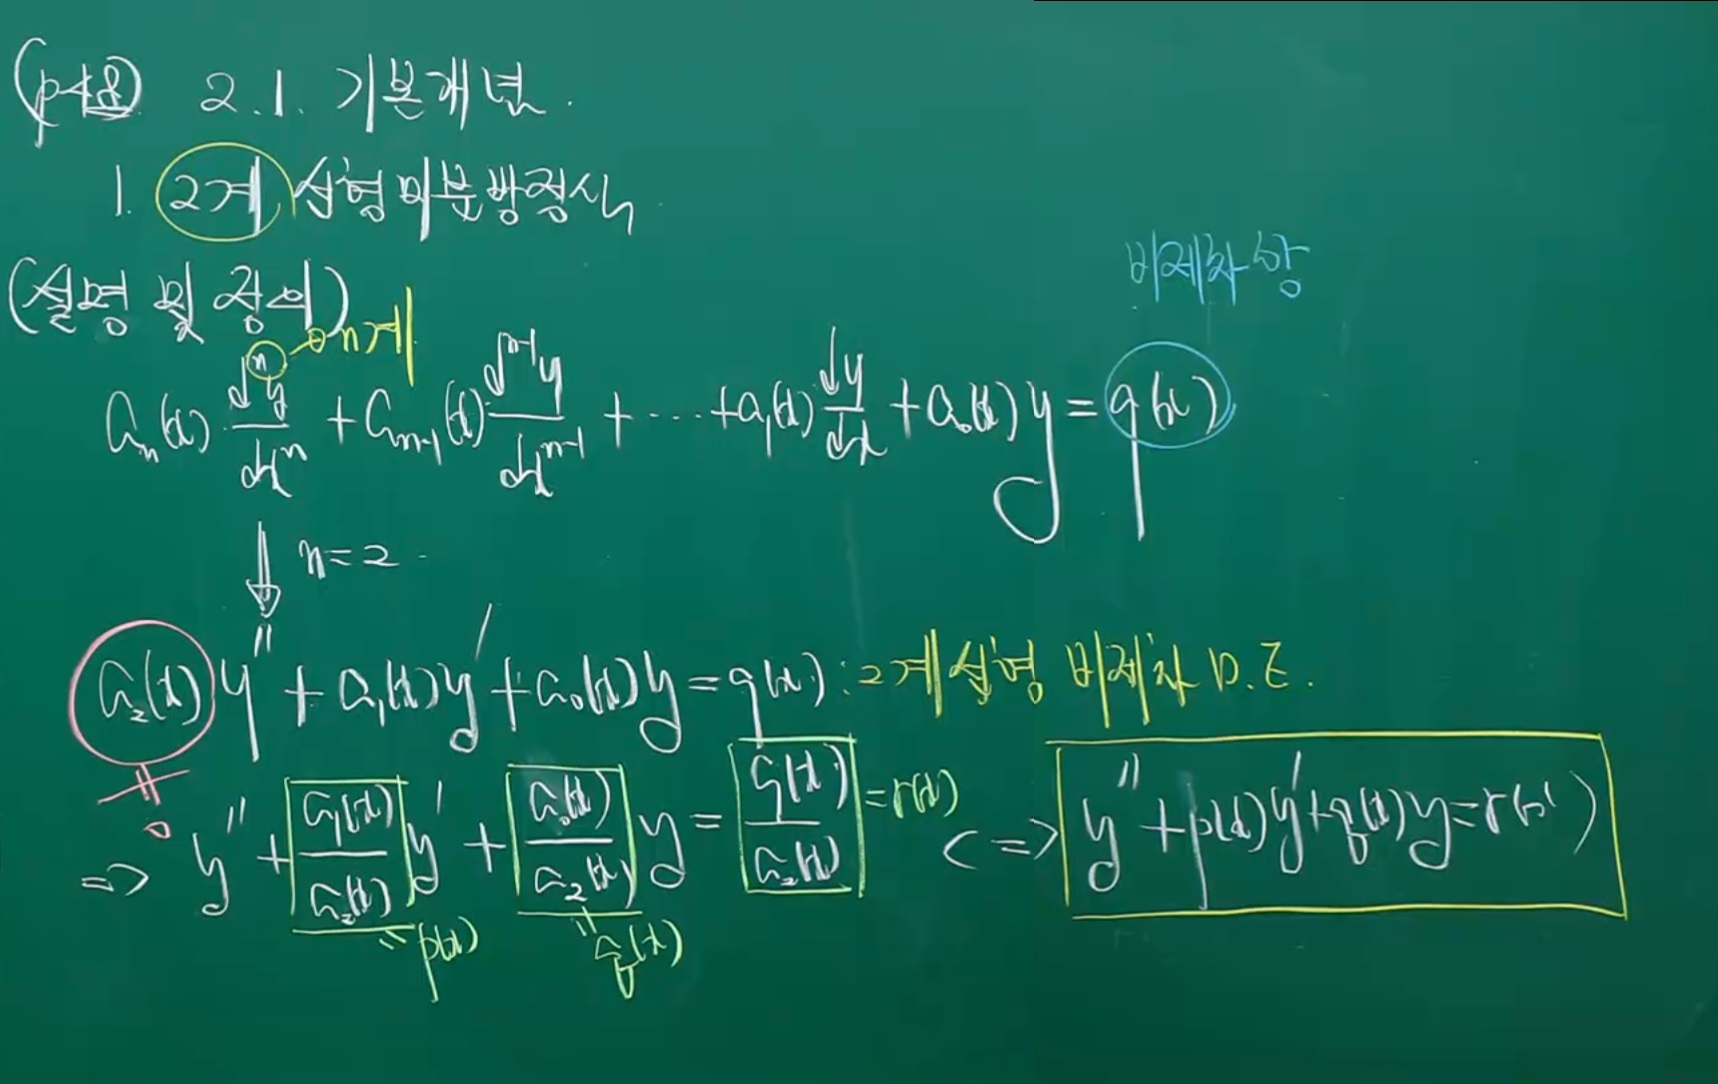 (p48) 2.1. 기본개념.
1. 2계 선형미분방정식
(설명 및 정의)
n계
비제차항
aₙ(x) dⁿy/dxⁿ + aₙ₋₁(x) dⁿ⁻¹y/dxⁿ⁻¹ + ⋯ + a₁(x) dy/dx + a₀(x)y = g(x)
⇓ n=2
a₂(x)y'' + a₁(x)y' + a₀(x)y = g(x) : 2계 선형 비제차 D.E.
≠ 0
=> y'' + a₁(x)/a₂(x) y' + a₀(x)/a₂(x) y = g(x)/a₂(x) = r(x) <=> y'' + p(x)y' + q(x)y = r(x)
= p(x) = q(x)